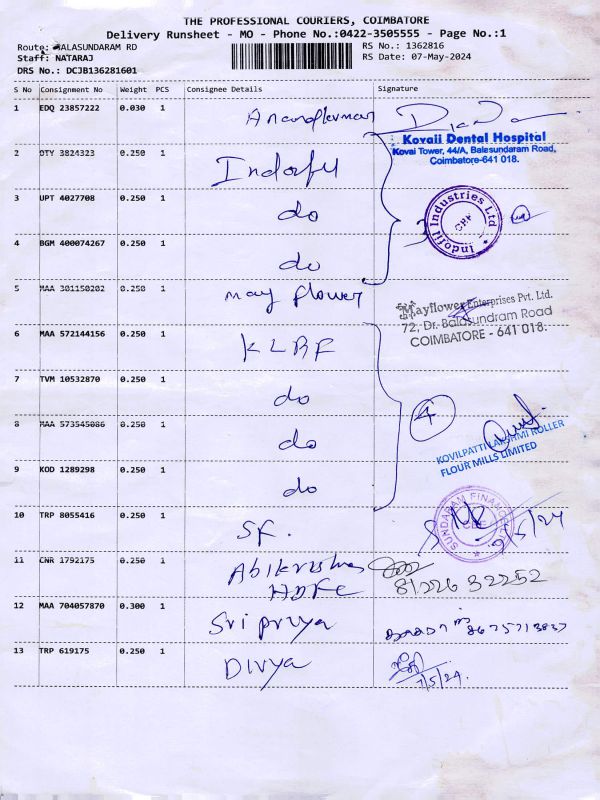 THE PROFESSIONAL COURIERS, COIMBATORE
Delivery Runsheet - MO - Phone No.:0422-3505555 - Page No.:1
Route: BALASUNDARAM RD
RS No.: 1362816
Staff: NATARAJ
RS Date: 07-May-2024
DRS No.: DCJB136281601
S No Consignment No Weight PCS Consignee Details Signature
1 EDQ 23857222 0.030 1 Anandkumar
Kovaii Dental Hospital
Kovai Tower, 44/A, Balesundaram Road,
Coimbatore-641 018.
2 OTY 3824323 0.250 1
3 UPT 4027708 0.250 1 do
Indofil Industries Ltd
CBE
4 BGM 400074267 0.250 1 do
5 MAA 301150202 0.250 1 may flower
Mayflower Enterprises Pvt. Ltd.
72, Dr. Balasundram Road
COIMBATORE - 641 018.
6 MAA 572144156 0.250 1 KLRF
7 TVM 10532870 0.250 1 do
4
8 MAA 573545086 0.250 1 do
KOVILPATTI LAKSHMI ROLLER
FLOUR MILLS LIMITED
9 KOD 1289298 0.250 1 do
10 TRP 8055416 0.250 1 SF.
SUNDARAM FINANCE
CBE
7/5/24
11 CNR 1792175 0.250 1 Abikrishna
HDFC
81226 32252
12 MAA 704057870 0.300 1 Sri priya
13 TRP 619175 0.250 1 Divya
7/5/24.